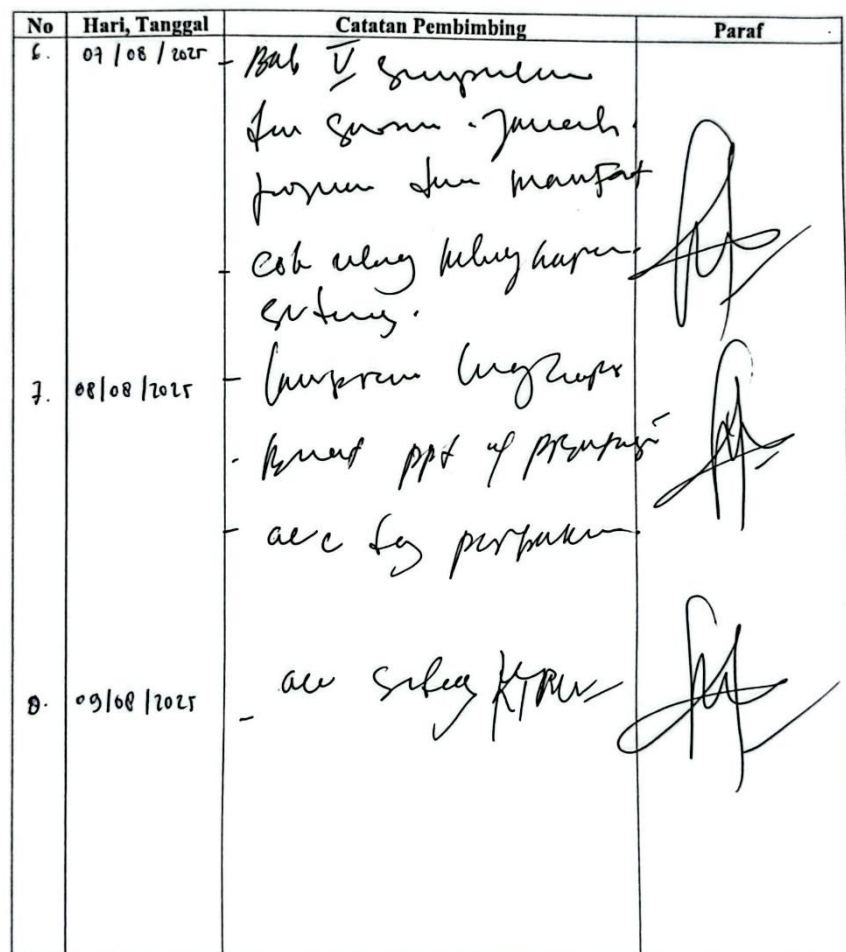 No Hari, Tanggal Catatan Pembimbing Paraf
6. 07/08/2025 - Bab V Simpulan
dan Saran. Jawab
tujuan dan manfaat
- cek ulang
7. 08/08/2025 - lampiran lengkapi
- Buat ppt presentasi
- acc dg perbaikan
8. 09/08/2025 - acc sidang